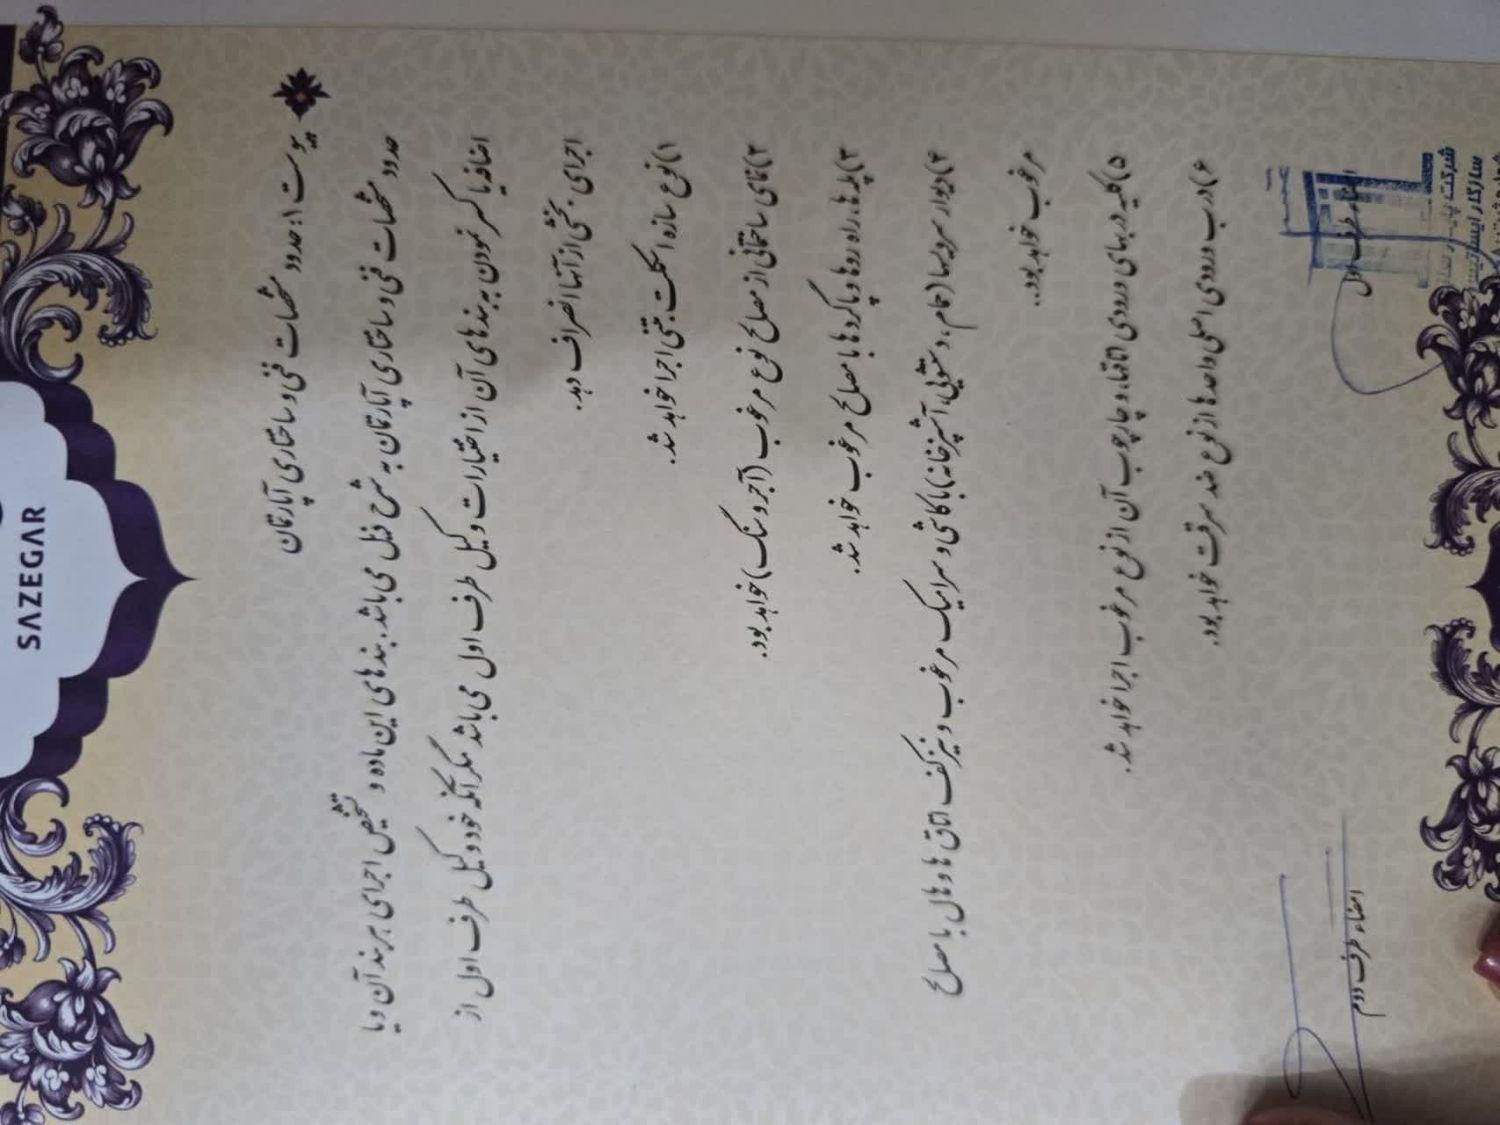 SAZEGAR
پیوست ۱: حدود مشخصات فنی و ساختاری آپارتمان
حدود مشخصات فنی و ساختاری آپارتمان به شرح ذیل می باشد. بندهای این ماده و تشخیص اجرای هر بند آن و یا
اضافه یا کسر نمودن به بندهای آن از اختیارات وکیل طرف اول می باشد مگر آنکه خود وکیل طرف اول از
اجرای بخشی از آنها انصراف دهد.
۱) نوع سازه اسکلت بتنی اجرا خواهد شد.
۲) نمای ساختمانی از مصالح نوع مرغوب (آجر و سنگ) خواهد بود.
۳) پله ها، راه روها و پاگردها با مصالح مرغوب خواهد شد.
۴) دیوار سرویسها (حمام، دستشویی، آشپزخانه) با کاشی و سرامیک مرغوب و نیز کف اتاق ها و هال با مصالح
مرغوب خواهد بود..
۵) کلیه دربهای ورودی اتاقها، و چارچوب آن از نوع مرغوب اجرا خواهد شد.
۶) درب ورودی اصلی واحدها از نوع ضد سرقت خواهد بود.
امضاء طرف اول
امضاء طرف دوم
شرکت
سازگار ایساتیس